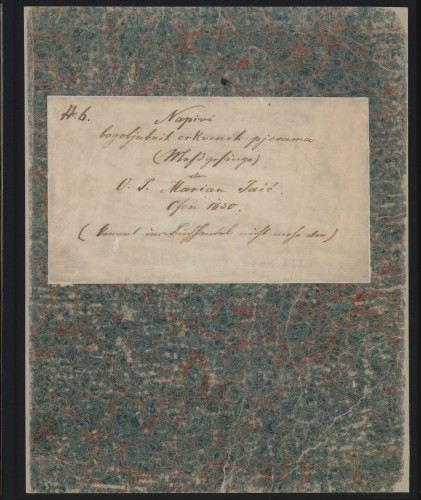 № 6.
Napivi
bogoljubnih crkvenih pjesama
(Meßgesänge)
O. P. Marian Jaić.
Ofen 1850.
( kommt im Buchhandel nicht mehr vor )